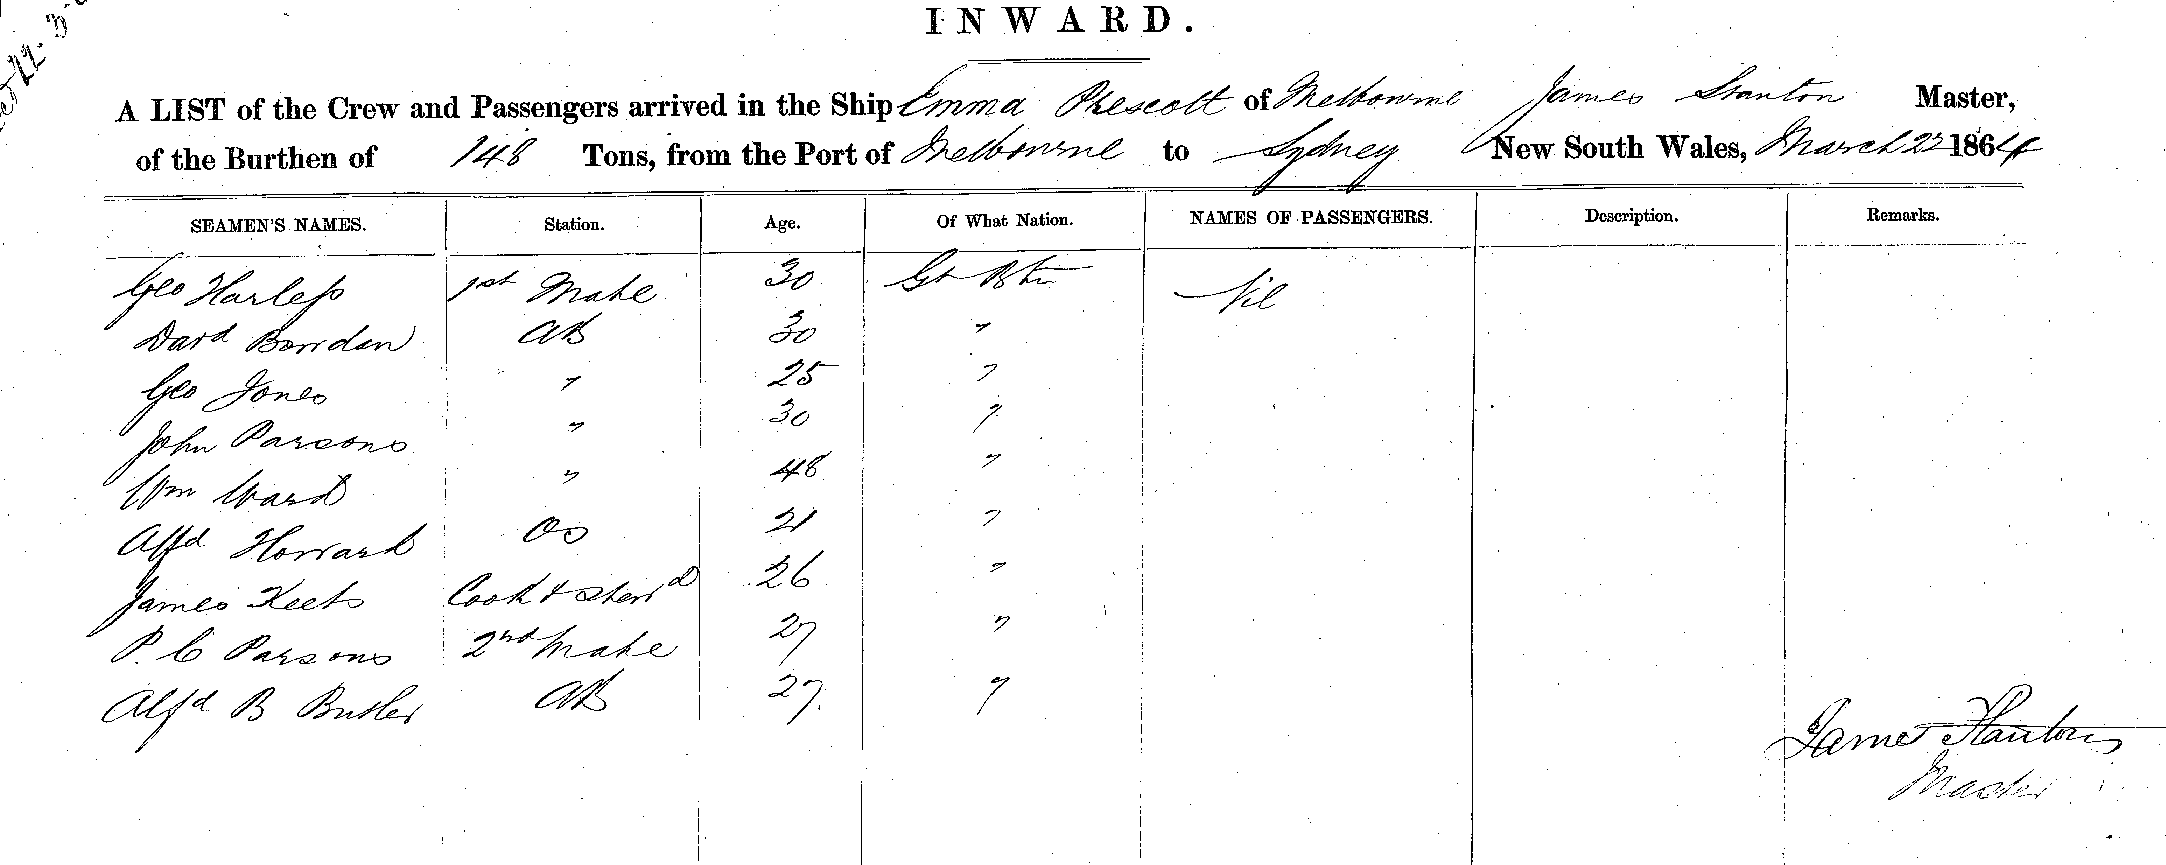 INWARD.
A LIST of the Crew and Passengers arrived in the Ship Emma Prescott of Melbourne James Stanton Master,
of the Burthen of 148 Tons, from the Port of Melbourne to Sydney New South Wales, March 22 1864
SEAMEN'S NAMES. Station. Age. Of What Nation. NAMES OF PASSENGERS. Description. Remarks.
Geo Harless 1st Mate 30 Gt Btn Nil
Davd Bowden AB 30 "
Geo Jones " 25 "
John Parsons " 30 "
Wm Ward " 48 "
Alfd Howard OS 21 "
James Keets Cook & Stewd 26 "
P. C Parsons 2nd Mate 27 "
Alfd B Butler AB 27. "
James Stanton
Master